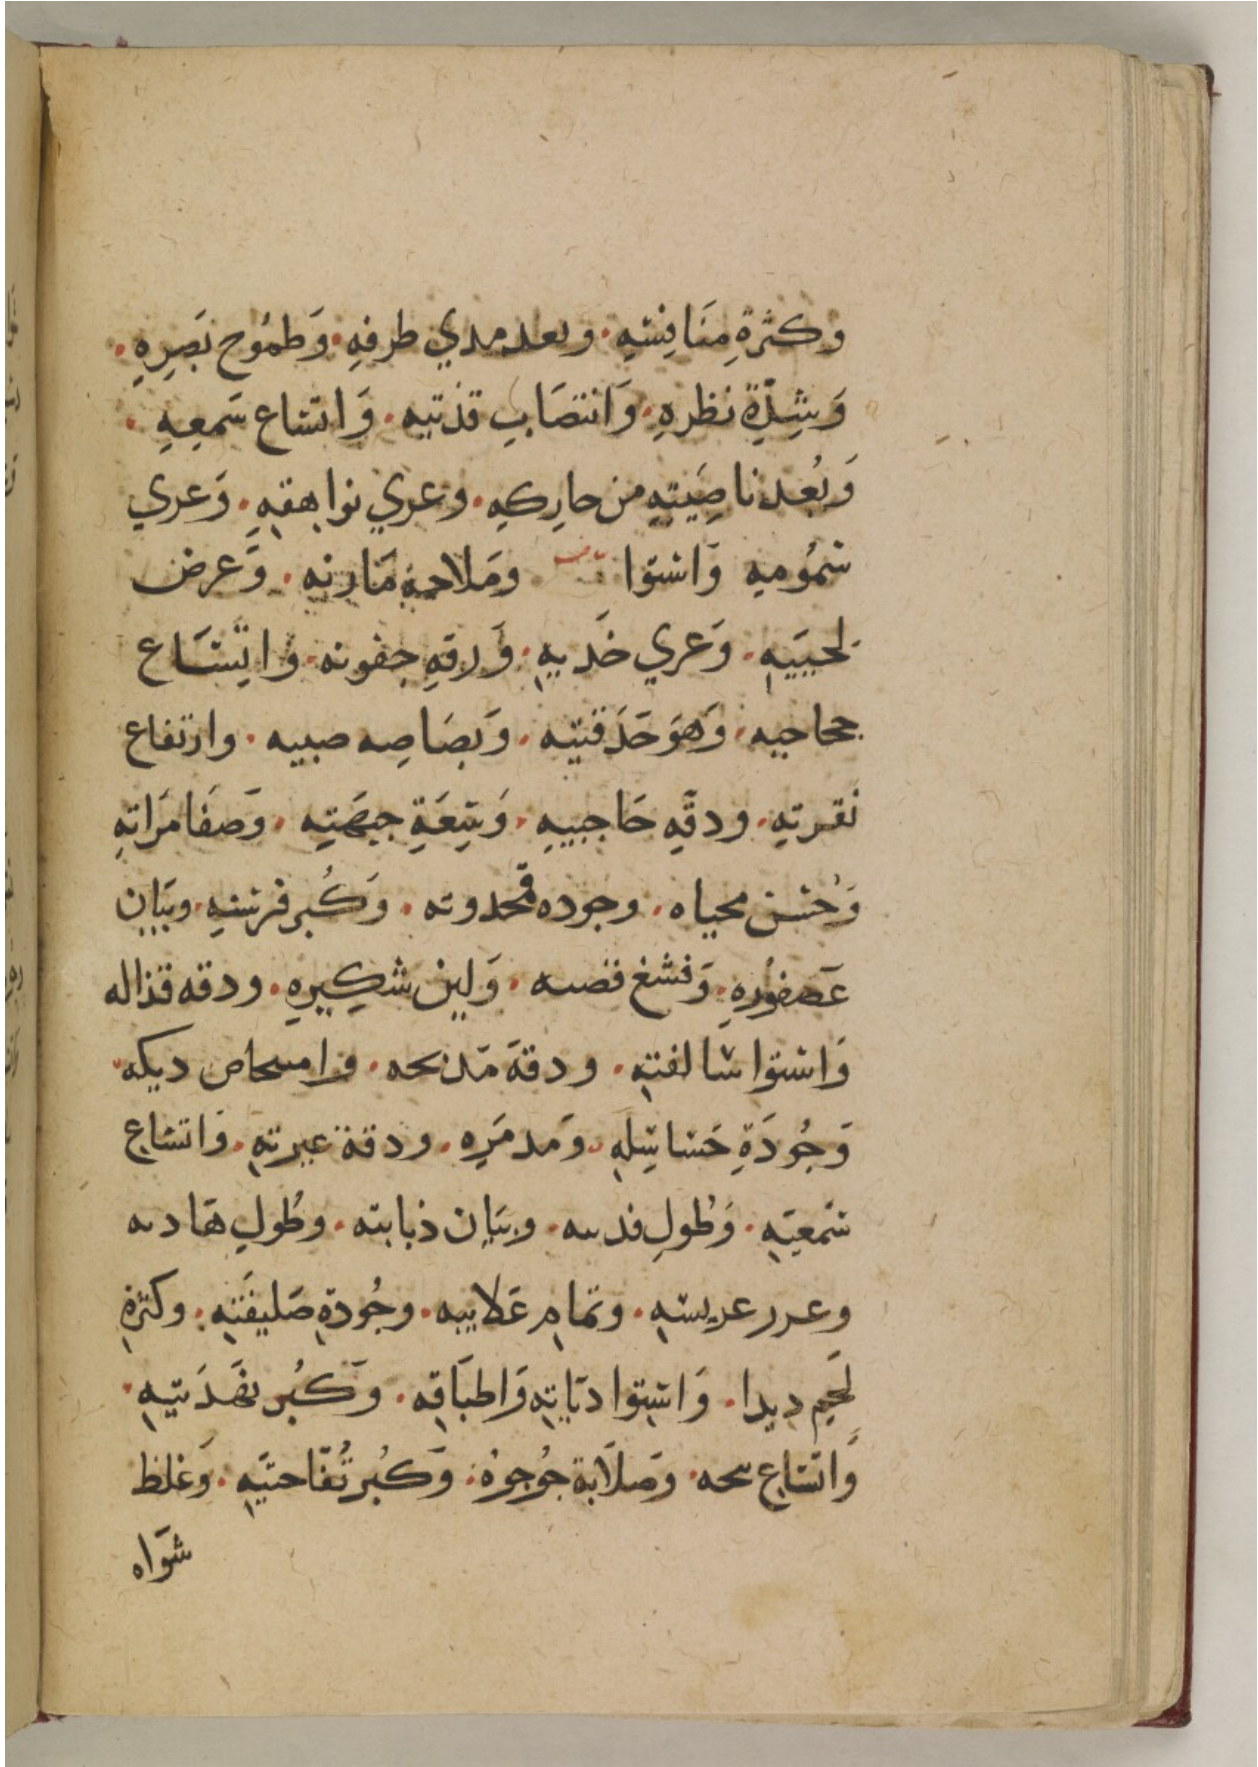 وكثرةِ مَنَافِسِهِ. وبعد مدي طرفهِ. وَطمُوح بَصَرِهِ.
وَشِدّةِ نظرهِ. وَانتصَابِ قذتيه. وَاتساع سَمعِهِ.
وَبُعد ناصِيَتِهِ من حارِكهِ. وعري نواهقهِ. وَعري
سمُومهِ وَاستوا ومَلاحةِ مَارنه. وَعرض
لحييَهِ. وَعري خَديهِ. وَرقهِ جفونه. وَاتِسَاع
حجاجيه. وَهوَ حَدَقتيه. وَبصَاصِه صبييه. وارتفاع
نقرتهِ. ودقّهِ حَاجبيهِ. وَسِعَةِ جبهَتِهِ. وَصفَا مَرَاتهِ
وَحُسن محياه. وجوده قمحدوته. وَكُبر فرسنهِ. وبيَان
عَصفوُرهِ. وَفشغ قصىه. وَلين شكِيرهِ. ودقه قذاله
وَاستوا سالفتهِ. ودقة مَذبحه. وامحاص ديكه
وَجُودَةِ خَشاشِهِ. وَمدمَرِه. ودقة عبرتهِ. وَاتساع
سَمعتِهِ. وَطُولِ قدىه. وبيَان ذبابته. وطُولِ هَادىه
وعرر عريسهِ. وتمامِ عَلابيه. وجُودةِ صَليفَتهِ. وكثرةِ
لحَمِ ديدا. وَاستوا دتايتهِ وَاطبَاقِه. وَكُبر نهَدَتيهِ.
وَاتسَاعِ سحه. وَصلَابة جوُجوُهُ. وَكُبر تُفّاحتيَهِ. وَغلظ
شوَاه